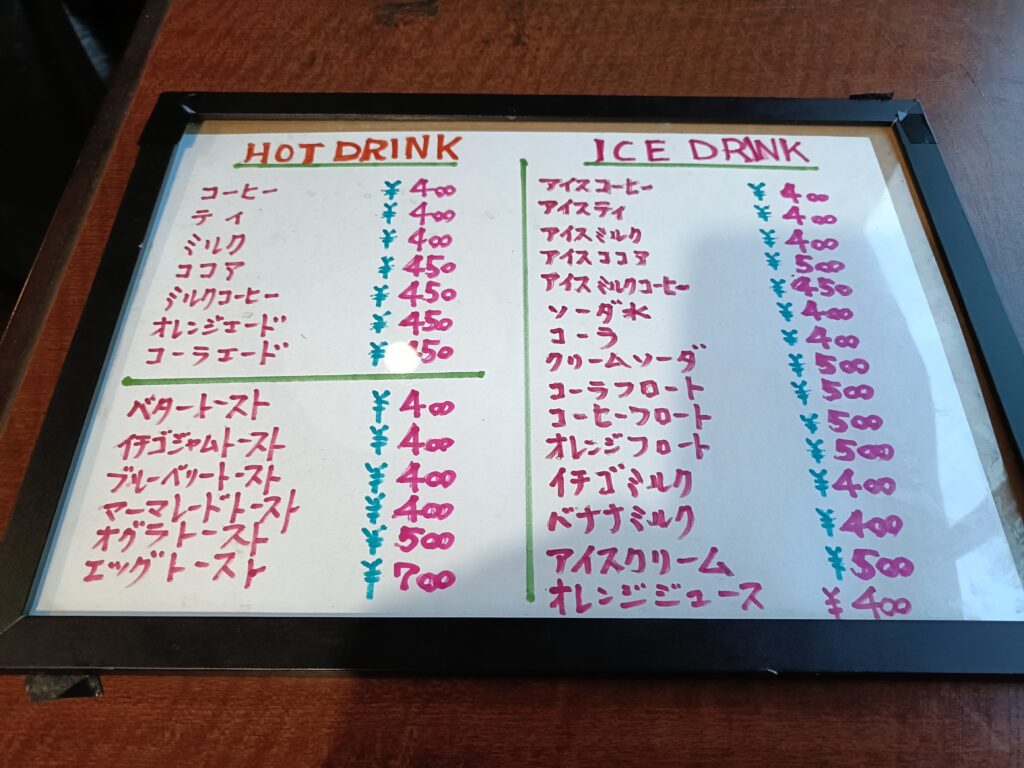 HOT DRINK
コーヒー ¥400
ティ ¥400
ミルク ¥400
ココア ¥450
ミルクコーヒー ¥450
オレンジエード ¥450
コーラエード ¥450
バタートースト ¥400
イチゴジャムトースト ¥400
ブルーベリートースト ¥400
マーマレードトースト ¥400
オグラトースト ¥500
エッグトースト ¥700
ICE DRINK
アイスコーヒー ¥400
アイスティ ¥400
アイスミルク ¥400
アイスココア ¥500
アイスミルクコーヒー ¥450
ソーダ水 ¥400
コーラ ¥400
クリームソーダ ¥500
コーラフロート ¥500
コーヒーフロート ¥500
オレンジフロート ¥500
イチゴミルク ¥400
バナナミルク ¥400
アイスクリーム ¥500
オレンジジュース ¥400